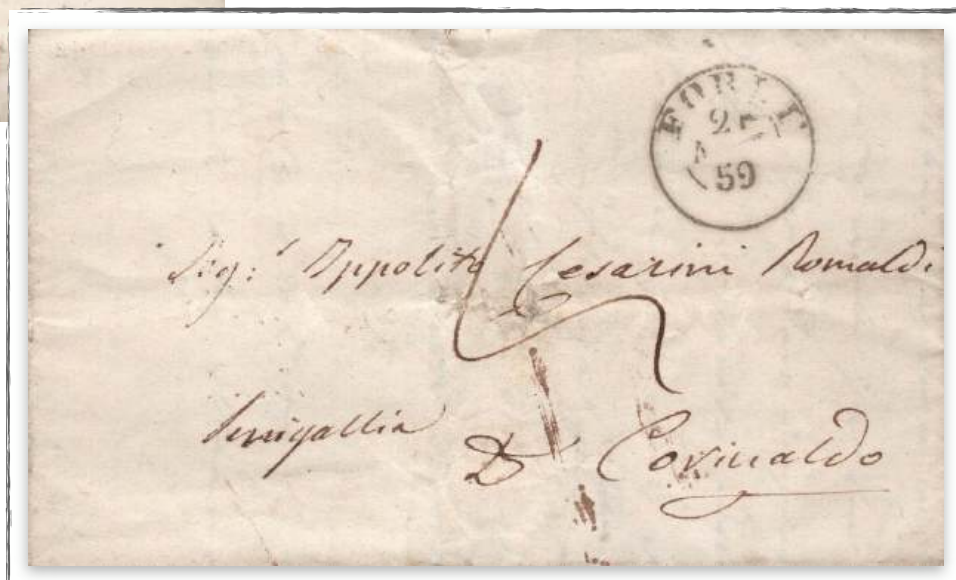 FORLI
59
Sig:r Ippolito Cesarini Romaldi
Senigallia
D Corinaldo